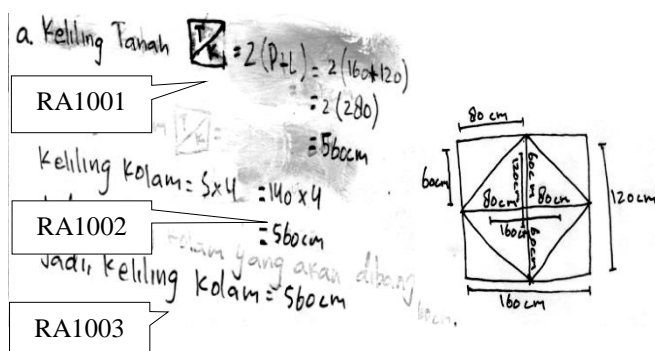 a. Keliling Tanah T/K = 2 (P+L) = 2 (160+120)
= 2 (280)
= 560cm
RA1001
T/K
Keliling Kolam = S x 4 = 140 x 4
= 560cm
RA1002
kolam yang akan dibang
Jadi, keliling kolam = 560cm
RA1003
80 cm
60cm
120cm
60cm
80cm
80cm
160cm
60cm
120cm
160cm